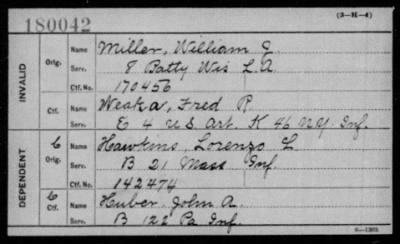 180042
(3-H-4)
INVALID
Orig.
Name Miller, William J.
Serv. 8 Batty Wis L.A.
Ctf. No. 170456
Ctf.
Name Weaka, Fred R.
Serv. E 4 U S Art. K 46 N.Y. Inf.
DEPENDENT
C
Orig.
Name Hawkins, Lorenzo L.
Serv. B 21 Mass Inf.
Ctf. No. 142474
C
Ctf.
Name Huber, John A.
Serv. B 122 Pa Inf.